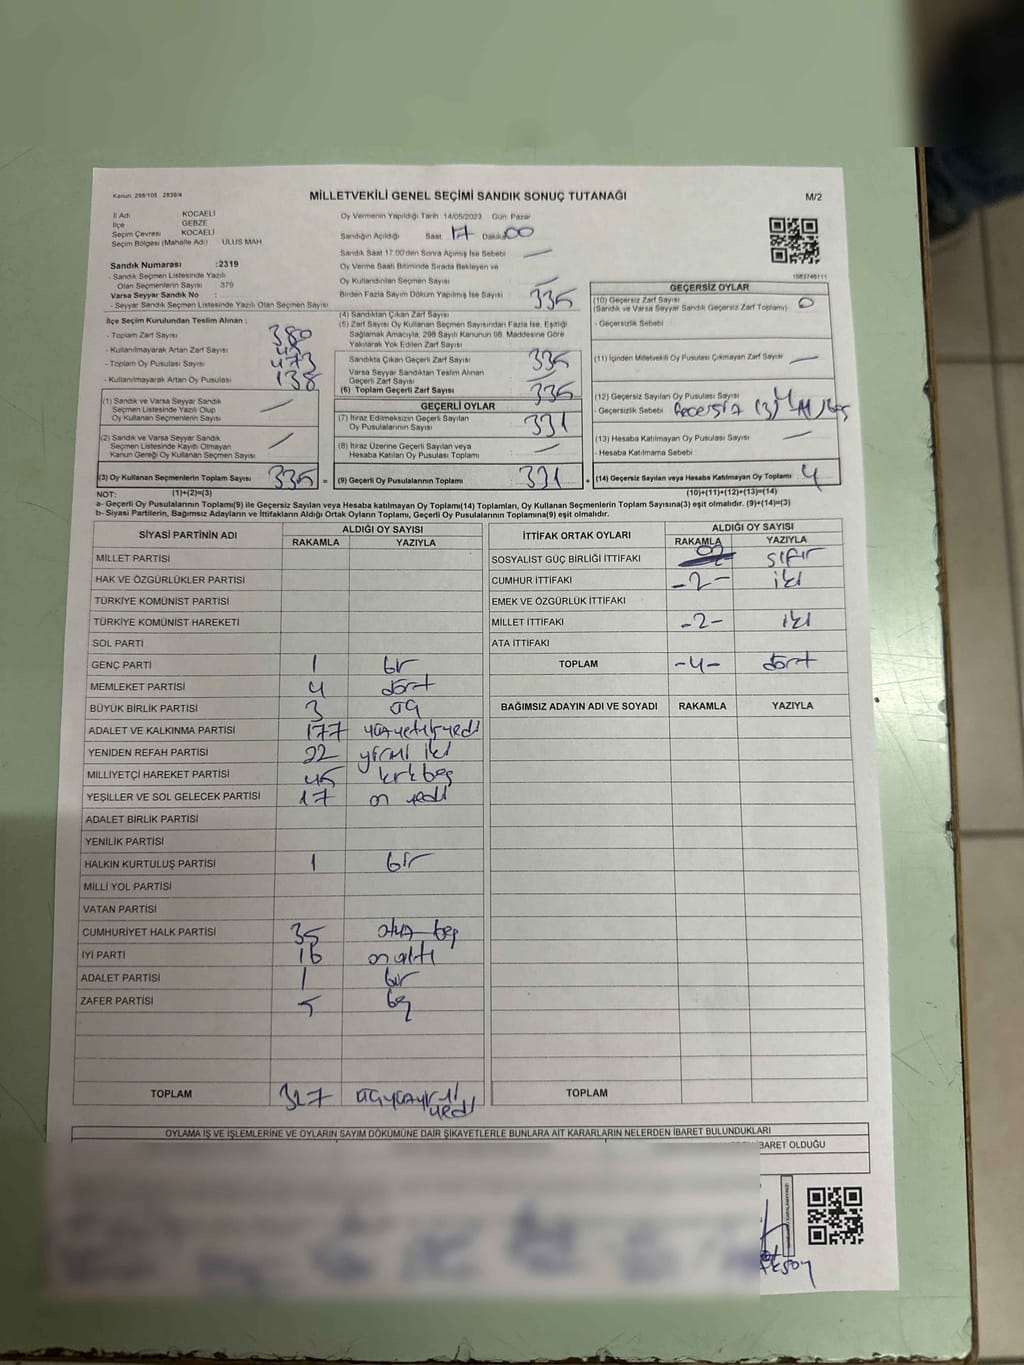 Kanun. 298/105 2839/4
MİLLETVEKİLİ GENEL SEÇİMİ SANDIK SONUÇ TUTANAĞI
M/2
İl Adı : KOCAELİ
İlçe : GEBZE
Seçim Çevresi : KOCAELİ
Seçim Bölgesi (Mahalle Adı) : ULUS MAH
Sandık Numarası :2319
- Sandık Seçmen Listesinde Yazılı
Olan Seçmenlerin Sayısı : 379
Varsa Seyyar Sandık No :
- Seyyar Sandık Seçmen Listesinde Yazılı Olan Seçmen Sayısı
İlçe Seçim Kurulundan Teslim Alınan :
- Toplam Zarf Sayısı 380
- Kullanılmayarak Artan Zarf Sayısı
- Toplam Oy Pusulası Sayısı 473
- Kullanılmayarak Artan Oy Pusulası 138
(1) Sandık ve Varsa Seyyar Sandık
Seçmen Listesinde Yazılı Olup
Oy Kullanan Seçmenlerin Sayısı
(2) Sandık ve Varsa Seyyar Sandık
Seçmen Listesinde Kayıtlı Olmayan
Kanun Gereği Oy Kullanan Seçmen Sayısı
(3) Oy Kullanan Seçmenlerin Toplam Sayısı 335 =
Oy Vermenin Yapıldığı Tarih 14/05/2023 Gün Pazar
Sandığın Açıldığı Saat 17 Dakika 00
Sandık Saat 17:00'den Sonra Açımış İse Sebebi —
Oy Verme Saati Bitiminde Sırada Bekleyen ve
Oy Kullandırılan Seçmen Sayısı
Birden Fazla Sayım Döküm Yapılmış İse Sayısı
(4) Sandıktan Çıkan Zarf Sayısı 335
(5) Zarf Sayısı Oy Kullanan Seçmen Sayısından Fazla İse, Eşitliği
Sağlamak Amacıyla; 298 Sayılı Kanunun 98. Maddesine Göre
Yakılarak Yok Edilen Zarf Sayısı
Sandıkta Çıkan Geçerli Zarf Sayısı 335
Varsa Seyyar Sandıktan Teslim Alınan
Geçerli Zarf Sayısı
(6) Toplam Geçerli Zarf Sayısı 335
GEÇERLİ OYLAR
(7) İtiraz Edilmeksizin Geçerli Sayılan
Oy Pusulalarının Sayısı 331
(8) İtiraz Üzerine Geçerli Sayılan veya
Hesaba Katılan Oy Pusulası Toplamı —
(9) Geçerli Oy Pusulalarının Toplamı 331 +
GEÇERSİZ OYLAR
(10) Geçersiz Zarf Sayısı
(Sandık ve Varsa Seyyar Sandık Geçersiz Zarf Toplamı) 0
- Geçersizlik Sebebi
(11) İçinden Milletvekili Oy Pusulası Çıkmayan Zarf Sayısı —
(12) Geçersiz Sayılan Oy Pusulası Sayısı 4
- Geçersizlik Sebebi
(13) Hesaba Katılmayan Oy Pusulası Sayısı —
- Hesaba Katılmama Sebebi
(14) Geçersiz Sayılan veya Hesaba Katılmayan Oy Toplamı 4
NOT: (1)+(2)=(3) (10)+(11)+(12)+(13)=(14)
a- Geçerli Oy Pusulalarının Toplamı(9) ile Geçersiz Sayılan veya Hesaba katılmayan Oy Toplamı(14) Toplamları, Oy Kullanan Seçmenlerin Toplam Sayısına(3) eşit olmalıdır. (9)+(14)=(3)
b- Siyasi Partilerin, Bağımsız Adayların ve İttifakların Aldığı Ortak Oyların Toplamı, Geçerli Oy Pusulalarının Toplamına(9) eşit olmalıdır.
SİYASİ PARTİNİN ADI ALDIĞI OY SAYISI
RAKAMLA YAZIYLA
MİLLET PARTİSİ
HAK VE ÖZGÜRLÜKLER PARTİSİ
TÜRKİYE KOMÜNİST PARTİSİ
TÜRKİYE KOMÜNİST HAREKETİ
SOL PARTİ
GENÇ PARTİ 1 bir
MEMLEKET PARTİSİ 4 dört
BÜYÜK BİRLİK PARTİSİ 3 üç
ADALET VE KALKINMA PARTİSİ 177 yüzyetmişyedi
YENİDEN REFAH PARTİSİ 22 yirmi iki
MİLLİYETÇİ HAREKET PARTİSİ 45 kırkbeş
YEŞİLLER VE SOL GELECEK PARTİSİ 17 on yedi
ADALET BİRLİK PARTİSİ
YENİLİK PARTİSİ
HALKIN KURTULUŞ PARTİSİ 1 bir
MİLLİ YOL PARTİSİ
VATAN PARTİSİ
CUMHURİYET HALK PARTİSİ 35 otuz beş
İYİ PARTİ 16 on altı
ADALET PARTİSİ 1 bir
ZAFER PARTİSİ 5 beş
TOPLAM 327 üçyüzyirmi
yedi
İTTİFAK ORTAK OYLARI ALDIĞI OY SAYISI
RAKAMLA YAZIYLA
SOSYALİST GÜÇ BİRLİĞİ İTTİFAKI sıfır
CUMHUR İTTİFAKI -2- iki
EMEK VE ÖZGÜRLÜK İTTİFAKI
MİLLET İTTİFAKI -2- iki
ATA İTTİFAKI
TOPLAM -4- dört
BAĞIMSIZ ADAYIN ADI VE SOYADI RAKAMLA YAZIYLA
TOPLAM
OYLAMA İŞ VE İŞLEMLERİNE VE OYLARIN SAYIM DÖKÜMÜNE DAİR ŞİKAYETLERLE BUNLARA AİT KARARLARIN NELERDEN İBARET BULUNDUKLARI
İBARET OLDUĞU
Aksoy